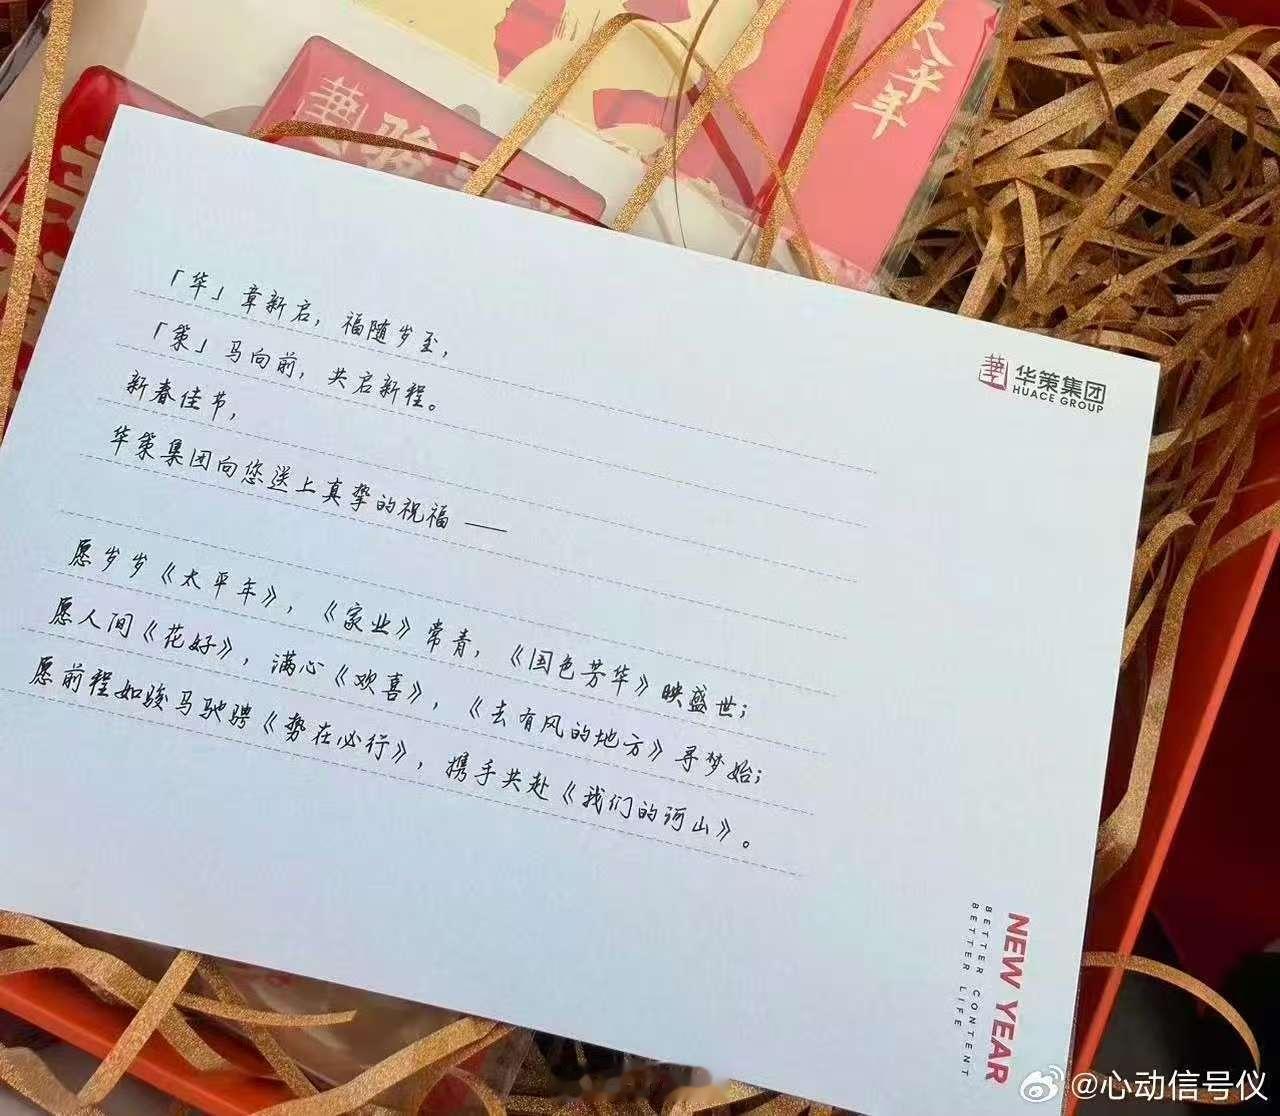 太平年
華
骏
「华」章新启，福随岁至，
「策」马向前，共启新程。
新春佳节，
华策集团向您送上真挚的祝福——
愿岁岁《太平年》，《家业》常青，《国色芳华》映盛世；
愿人间《花好》，满心《欢喜》，《去有风的地方》寻梦始；
愿前程如骏马驰骋《势在必行》，携手共赴《我们的河山》。
华策集团
HUACE GROUP
NEW YEAR
BETTER CONTENT
BETTER LIFE
@心动信号仪